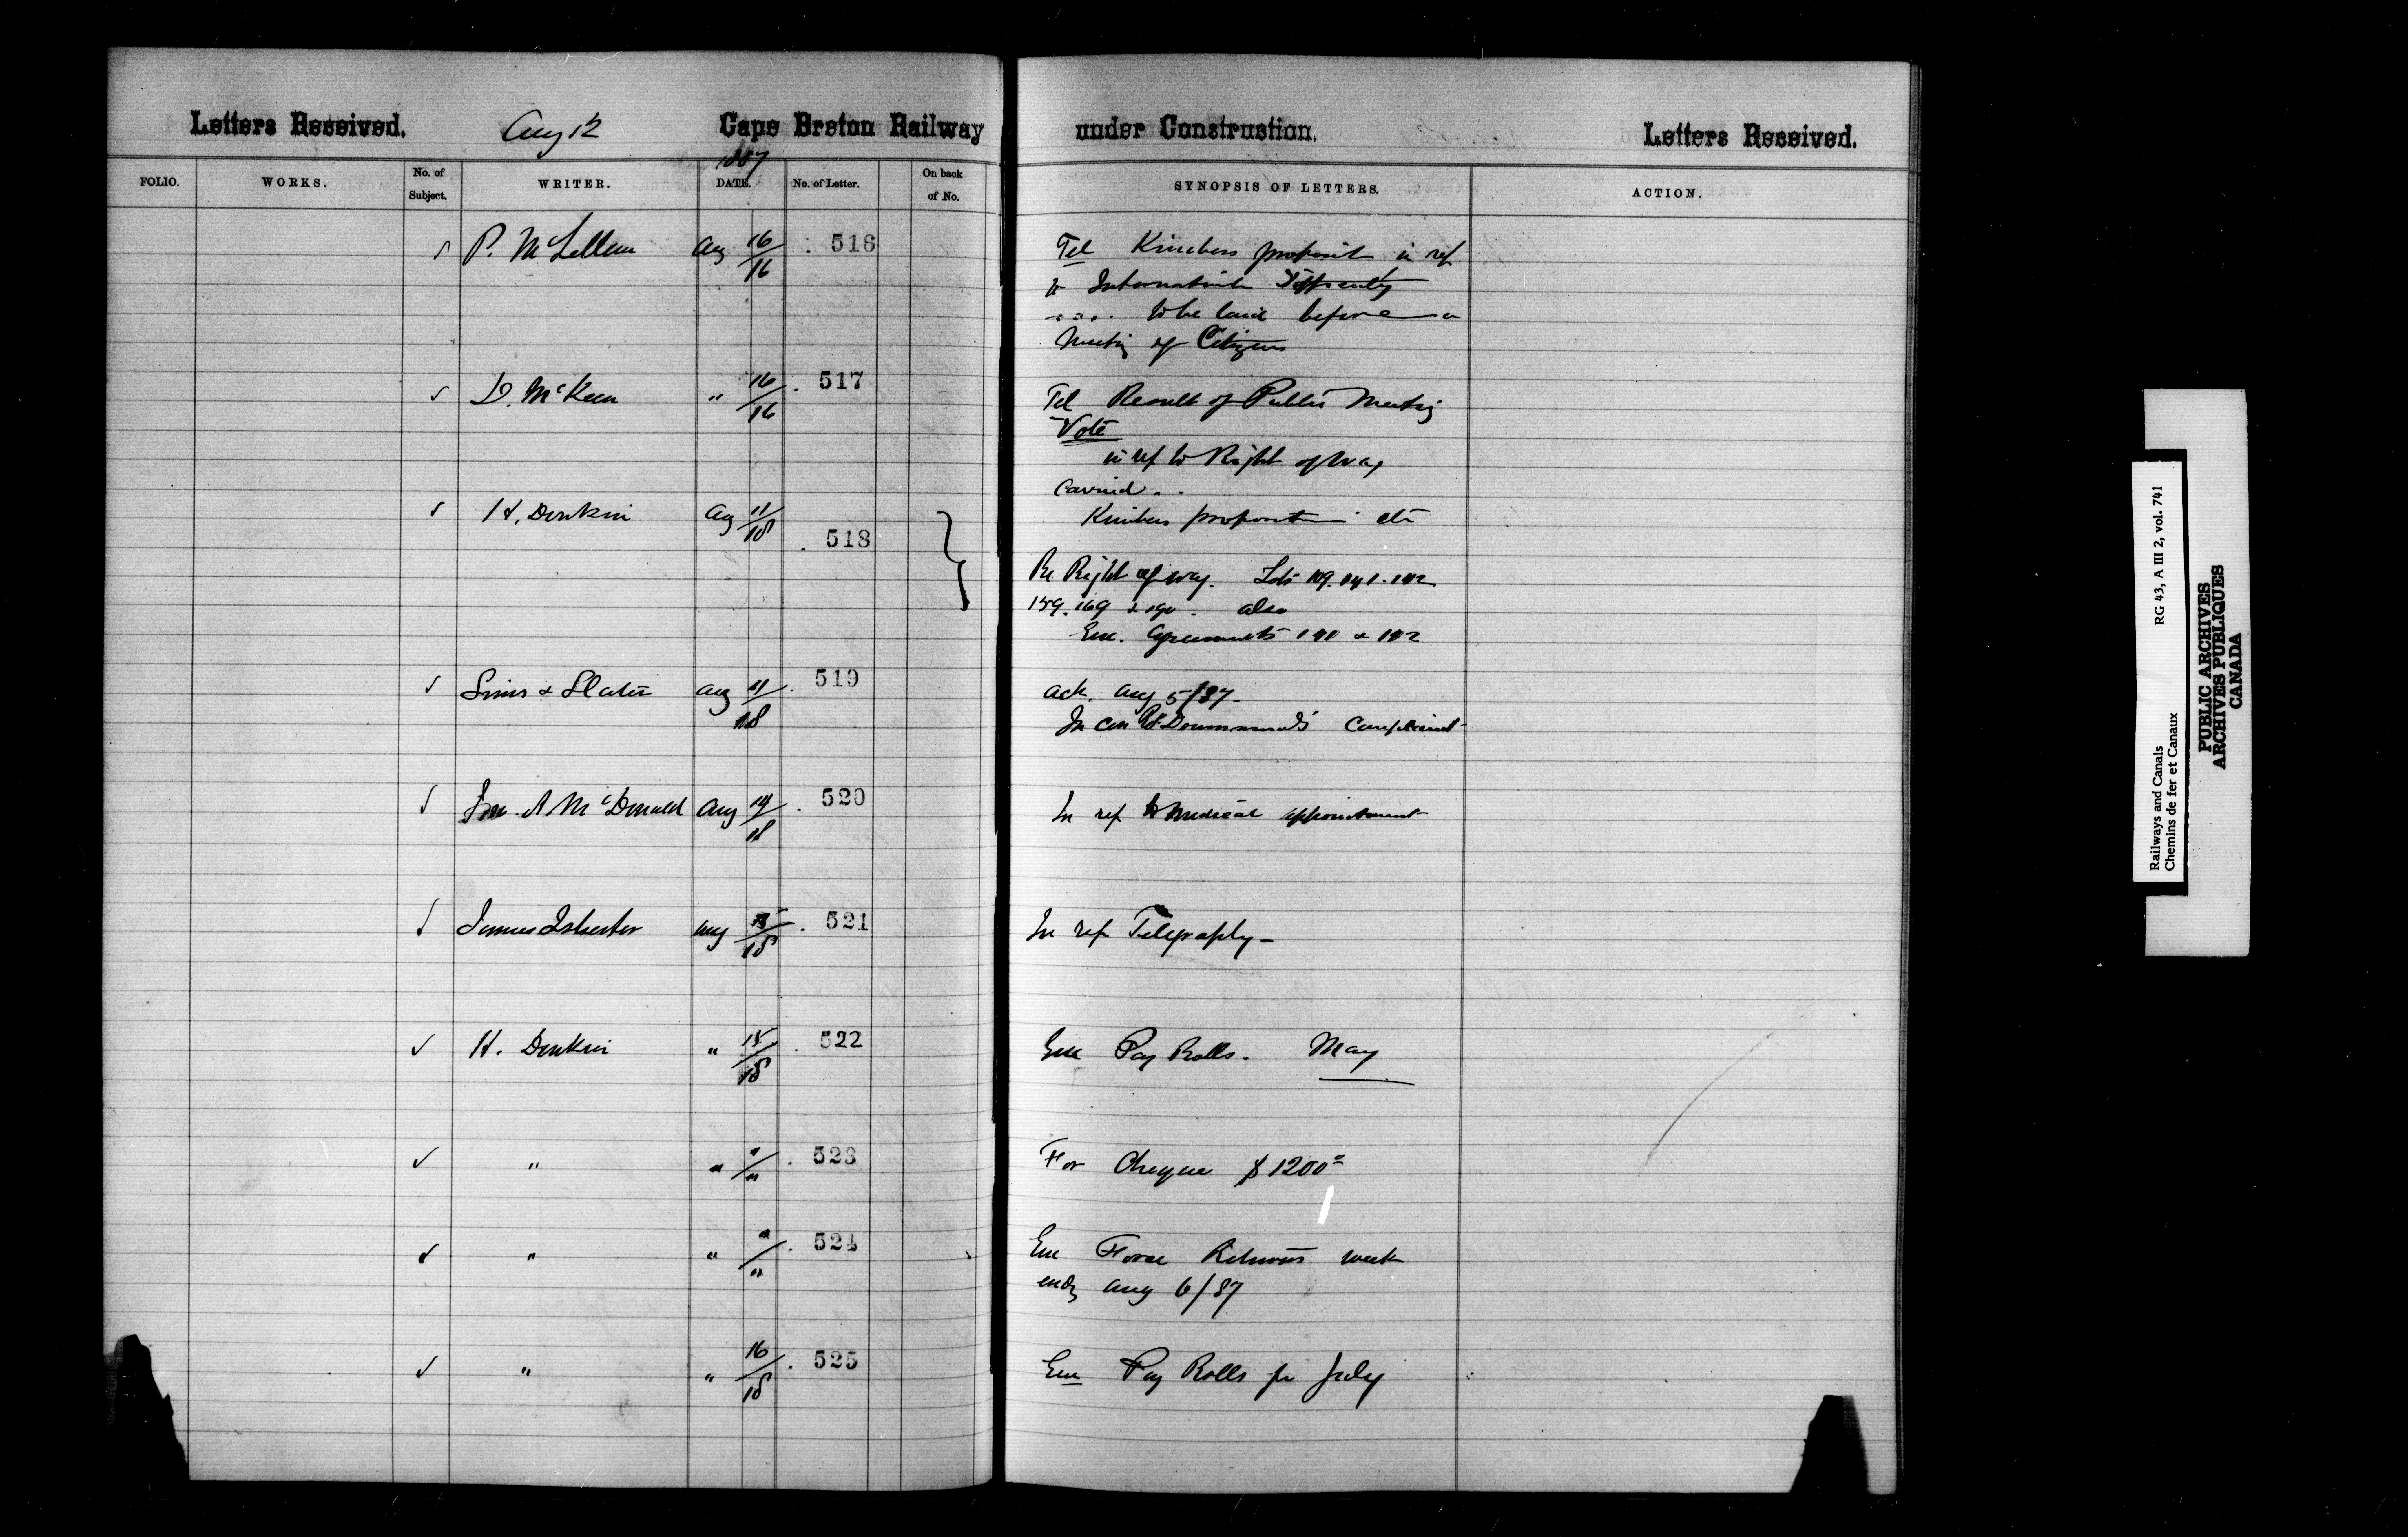 Letters Received. Aug 12 Cape Breton Railway
1887
FOLIO. WORKS. No. of Subject. WRITER. DATE. No. of Letter. On back of No.
P. McLellan Aug 16/16 516
D. McKeen " 16/16 517
H. Donkin Aug 11/18 518
Sims & Slater Aug 11/18 519
A McDonald Aug 14/18 520
James Isbester Aug /18 521
H. Donkin " 15/18 522
" " "/" 523
" " "/" 524
" " 16/18 525
under Construction. Letters Received.
SYNOPSIS OF LETTERS. ACTION.
Tel Kimbers in ref
to
.... to be laid before a
Meeting of Citizens
Tel Result of Public Meeting
Vote
in ref to Right of Way
Carried . .
Kimbers etc
Re Right of way. Lots
159. 169 & 190. also
Enc. Agreements 141 & 142
Ack. Aug 5/87.
Drummond's Complaint
In ref to Medical appointment
In ref Telegraphy -
Enc Pay Rolls. May
For Cheque $1200
Enc Force Returns week
endg Aug 6/87
Enc Pay Rolls for July
Railways and Canals RG 43, A III 2, vol. 741
Chemins de fer et Canaux
PUBLIC ARCHIVES
ARCHIVES PUBLIQUES
CANADA